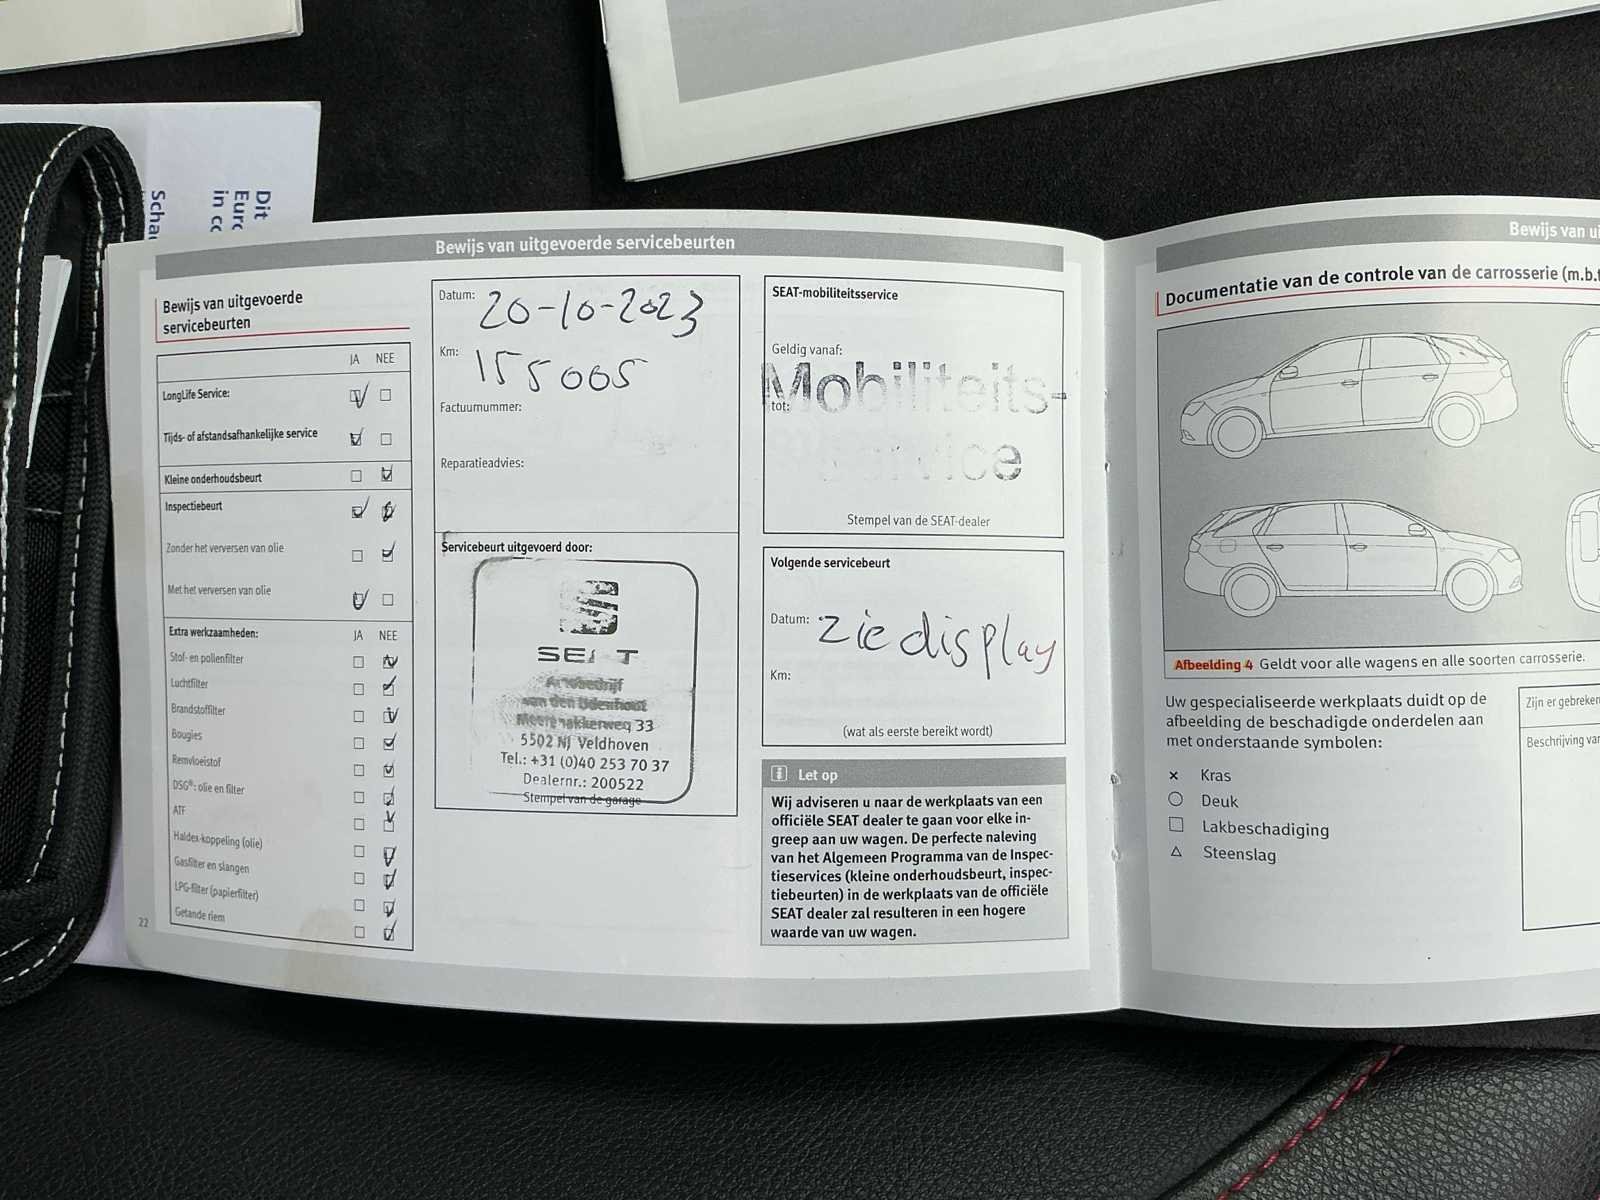 Dit
Euro
in co
Scha
Bewijs van uitgevoerde servicebeurten
Bewijs van uitgevoerde
servicebeurten
JA NEE
LongLife Service:
Tijds- of afstandsafhankelijke service
Kleine onderhoudsbeurt
Inspectiebeurt
Zonder het verversen van olie
Met het verversen van olie
Extra werkzaamheden: JA NEE
Stof- en pollenfilter
Luchtfilter
Brandstoffilter
Bougies
Remvloeistof
DSG®: olie en filter
ATF
Haldex-koppeling (olie)
Gasfilter en slangen
LPG-filter (papierfilter)
Getande riem
22
Datum: 20-10-2023
Km: 155005
Factuurnummer:
Reparatieadvies:
Servicebeurt uitgevoerd door:
SEAT
Autobedrijf
van den Udenhout
Meerenakkerweg 33
5502 NJ Veldhoven
Tel.: +31 (0)40 253 70 37
Dealernr.: 200522
Stempel van de garage
SEAT-mobiliteitsservice
Geldig vanaf:
Mobiliteits-
tot:
Service
Stempel van de SEAT-dealer
Volgende servicebeurt
Datum: zie display
Km:
(wat als eerste bereikt wordt)
i Let op
Wij adviseren u naar de werkplaats van een
officiële SEAT dealer te gaan voor elke in-
greep aan uw wagen. De perfecte naleving
van het Algemeen Programma van de Inspec-
tieservices (kleine onderhoudsbeurt, inspec-
tiebeurten) in de werkplaats van de officiële
SEAT dealer zal resulteren in een hogere
waarde van uw wagen.
Bewijs van ui
Documentatie van de controle van de carrosserie (m.b.t
Afbeelding 4 Geldt voor alle wagens en alle soorten carrosserie.
Uw gespecialiseerde werkplaats duidt op de
afbeelding de beschadigde onderdelen aan
met onderstaande symbolen:
× Kras
○ Deuk
□ Lakbeschadiging
△ Steenslag
Zijn er gebreken
Beschrijving van